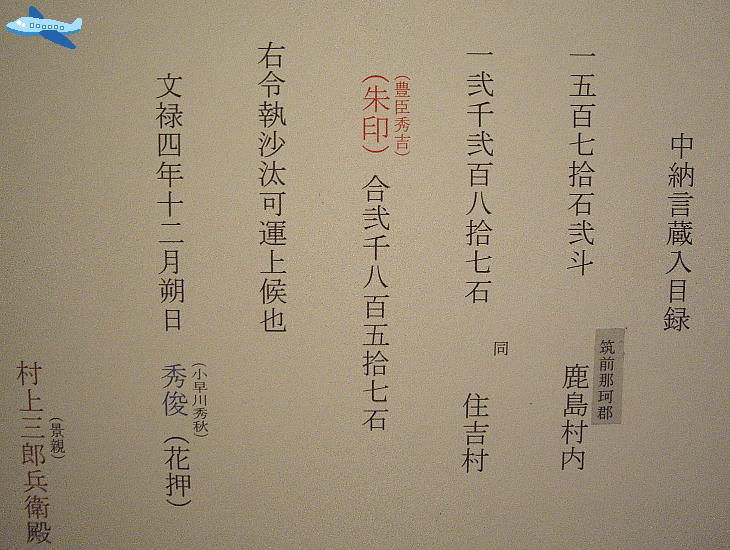 中納言蔵入目録
筑前那珂郡
一五百七拾石弐斗　鹿島村内
一弐千弐百八拾七石　同　住吉村
(豊臣秀吉)
(朱印)　合弐千八百五拾七石
右令執沙汰可運上候也
(小早川秀秋)
文禄四年十二月朔日　秀俊(花押)
(景親)
村上三郎兵衛殿